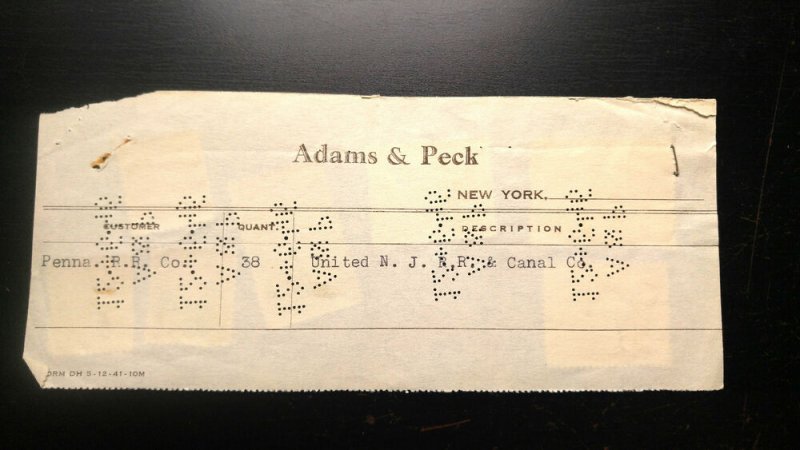 Adams & Peck
NEW YORK,
CUSTOMER QUANT. DESCRIPTION
Penna. R.R. Co. 38 United N. J. R.R. & Canal Co.
ORM DH 5-12-41-10M